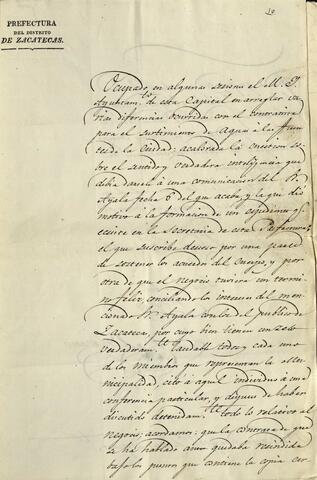 PREFECTURA
DEL DISTRITO
DE ZACATECAS.
Ocupado en algunas sesiones el M. Y.
Ayuntam.to de esta Capital en arreglar va-
rias diferencias ocurridas con el contratista
para el surtimiento de Aguas a las fuen-
tes de la Ciudad: acalorada la cuestion so-
bre el sentido y verdadera inteligencia que
debia darsele á una comunicacion del Sr.
Ayala fecha 6 del que acaba, y la que dió
motivo á la formacion de un espediente qe.
ecsiste en la Secretaria de esta Prefectura;
el que suscribe deseoso por una parte
de sostener los acuerdos del Cuerpo, y por
otra de que el negocio tuviera un termi-
no feliz, conciliando los intereses del men-
cionado Sr. Ayala con los del publico de
Zacatecas, por cuyo bien tienen un zelo
verdaderam.te laudable todos y cada uno
de los miembros que representan la Mu-
nicipalidad, citó á aquel individuo á una
conferencia particular, y despues de haber
discutido detenidam.te todo lo relativo al
negocio; acordamos: que la contrata de que
se ha hablado antes quedaba rescindida
bajo los puntos que contiene la copia cer